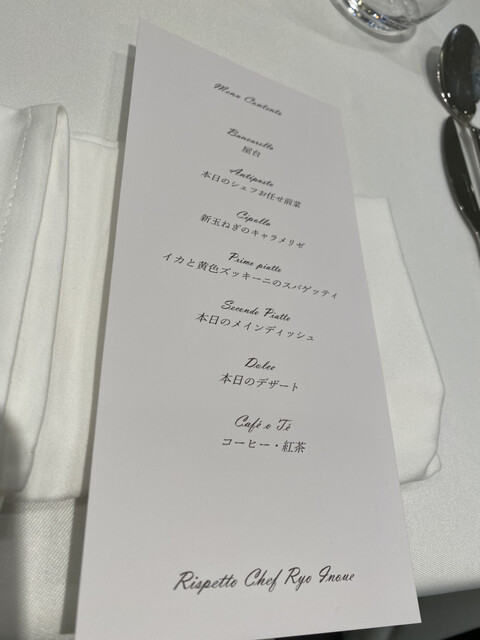 Menu Contents
Bancarella
屋台
Antipasto
本日のシェフお任せ前菜
Cipolla
新玉ねぎのキャラメリゼ
Primo piatto
イカと黄色ズッキーニのスパゲッティ
Secondo Piatto
本日のメインディッシュ
Dolce
本日のデザート
Café o Té
コーヒー・紅茶
Rispetto Chef Ryo Inoue